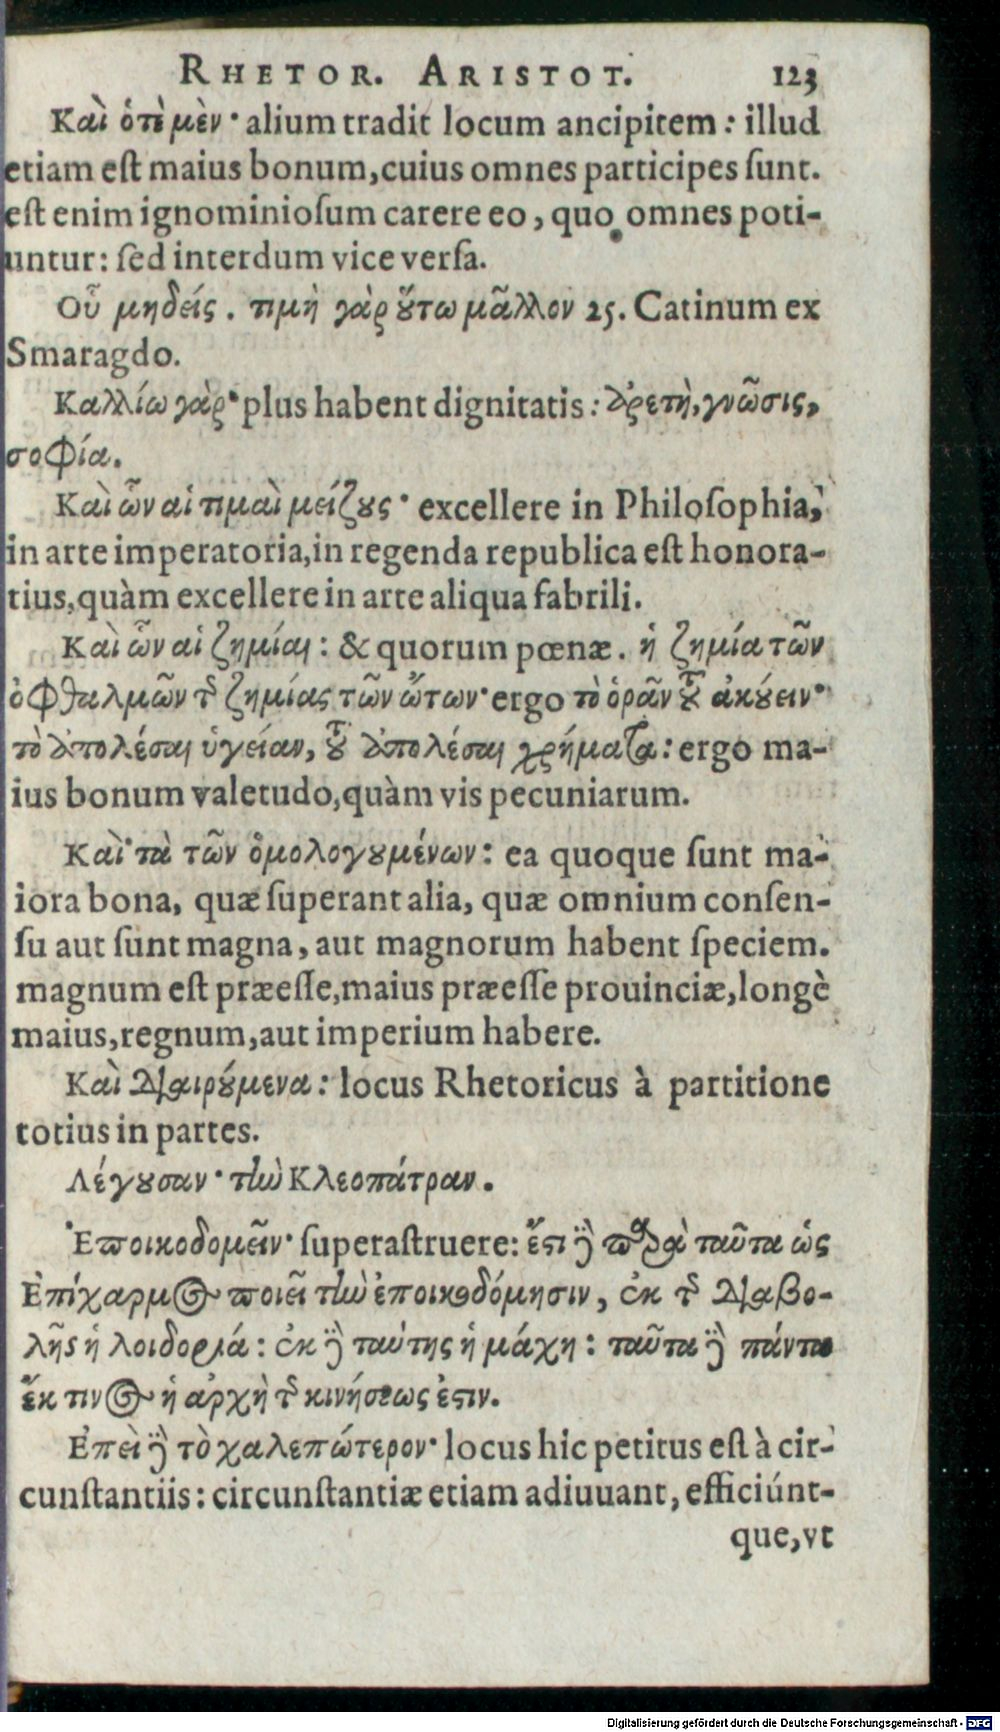 RHETOR. ARISTOT. 123
Καὶ ὅτι μὲν· alium tradit locum ancipitem: illud
etiam est maius bonum, cuius omnes participes sunt.
est enim ignominiosum carere eo, quo omnes poti-
untur: sed interdum vice versa.
Οὗ μηδείς. τιμὴ γὰρ ὅτω μᾶλλον 25. Catinum ex
Smaragdo.
Καλλίω γὰρ· plus habent dignitatis: ἀρετὴ, γνῶσις,
σοφία.
Καὶ ὧν αἱ τιμαὶ μείζους· excellere in Philosophia,
in arte imperatoria, in regenda republica est honora-
tius, quàm excellere in arte aliqua fabrili.
Καὶ ὧν αἱ ζημίαι: & quorum pœnæ. ἡ ζημία τῶν
ὀφθαλμῶν τῆς ζημίας τῶν ὤτων· ergo τὸ ὁρᾶν τοῦ ἀκούειν·
τὸ ἀπολέσαι ὑγείαν, τοῦ ἀπολέσαι χρήματα: ergo ma-
ius bonum valetudo, quàm vis pecuniarum.
Καὶ τὰ τῶν ὁμολογουμένων: ea quoque sunt ma-
iora bona, quæ superant alia, quæ omnium consen-
su aut sunt magna, aut magnorum habent speciem.
magnum est præesse, maius præesse prouinciæ, longè
maius, regnum, aut imperium habere.
Καὶ διαιρούμενα: locus Rhetoricus à partitione
totius in partes.
Λέγουσαν· τὴν Κλεοπάτραν.
Ἐποικοδομεῖν· superastruere: ἔτι δὲ παρὰ ταῦτα ὡς
Ἐπίχαρμος ποιεῖ τὴν ἐποικοδόμησιν, ἐκ τῆς διαβο-
λῆς ἡ λοιδορία: ἐκ δὲ ταύτης ἡ μάχη: ταῦτα δὲ πάντα
ἔκ τινος ἡ ἀρχὴ τῆς κινήσεως ἐστιν.
Ἐπεὶ δὲ τὸ χαλεπώτερον· locus hic petitus est à cir-
cunstantiis: circunstantiæ etiam adiuuant, efficiúnt-
que, vt
Digitalisierung gefördert durch die Deutsche Forschungsgemeinschaft - DFG